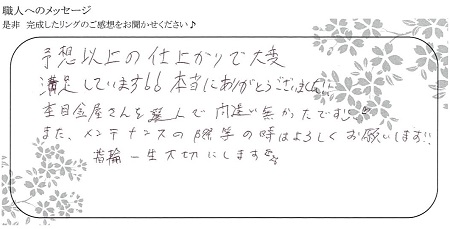 職人へのメッセージ
是非 完成したリングのご感想をお聞かせください♪
予想以上の仕上がりで大変
満足しています!! 本当にありがとうございました!!
杢目金屋さんを選んで間違い無かったです!!
また、メンテナンスの際等の時はよろしくお願いします!!
指輪一生大切にします